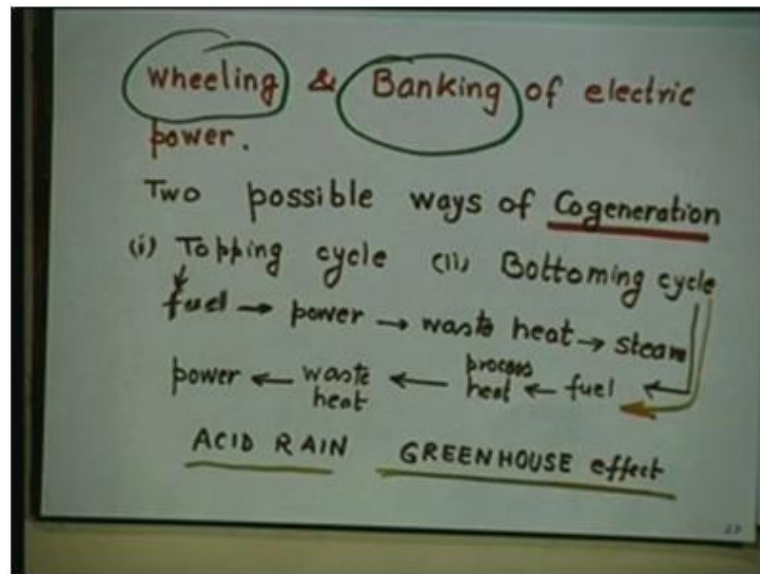 Wheeling & Banking of electric
power.
Two possible ways of Cogeneration
(i) Topping cycle (ii) Bottoming cycle
fuel → power → waste heat → steam
power ← waste heat ← process heat ← fuel ←
ACID RAIN GREENHOUSE effect